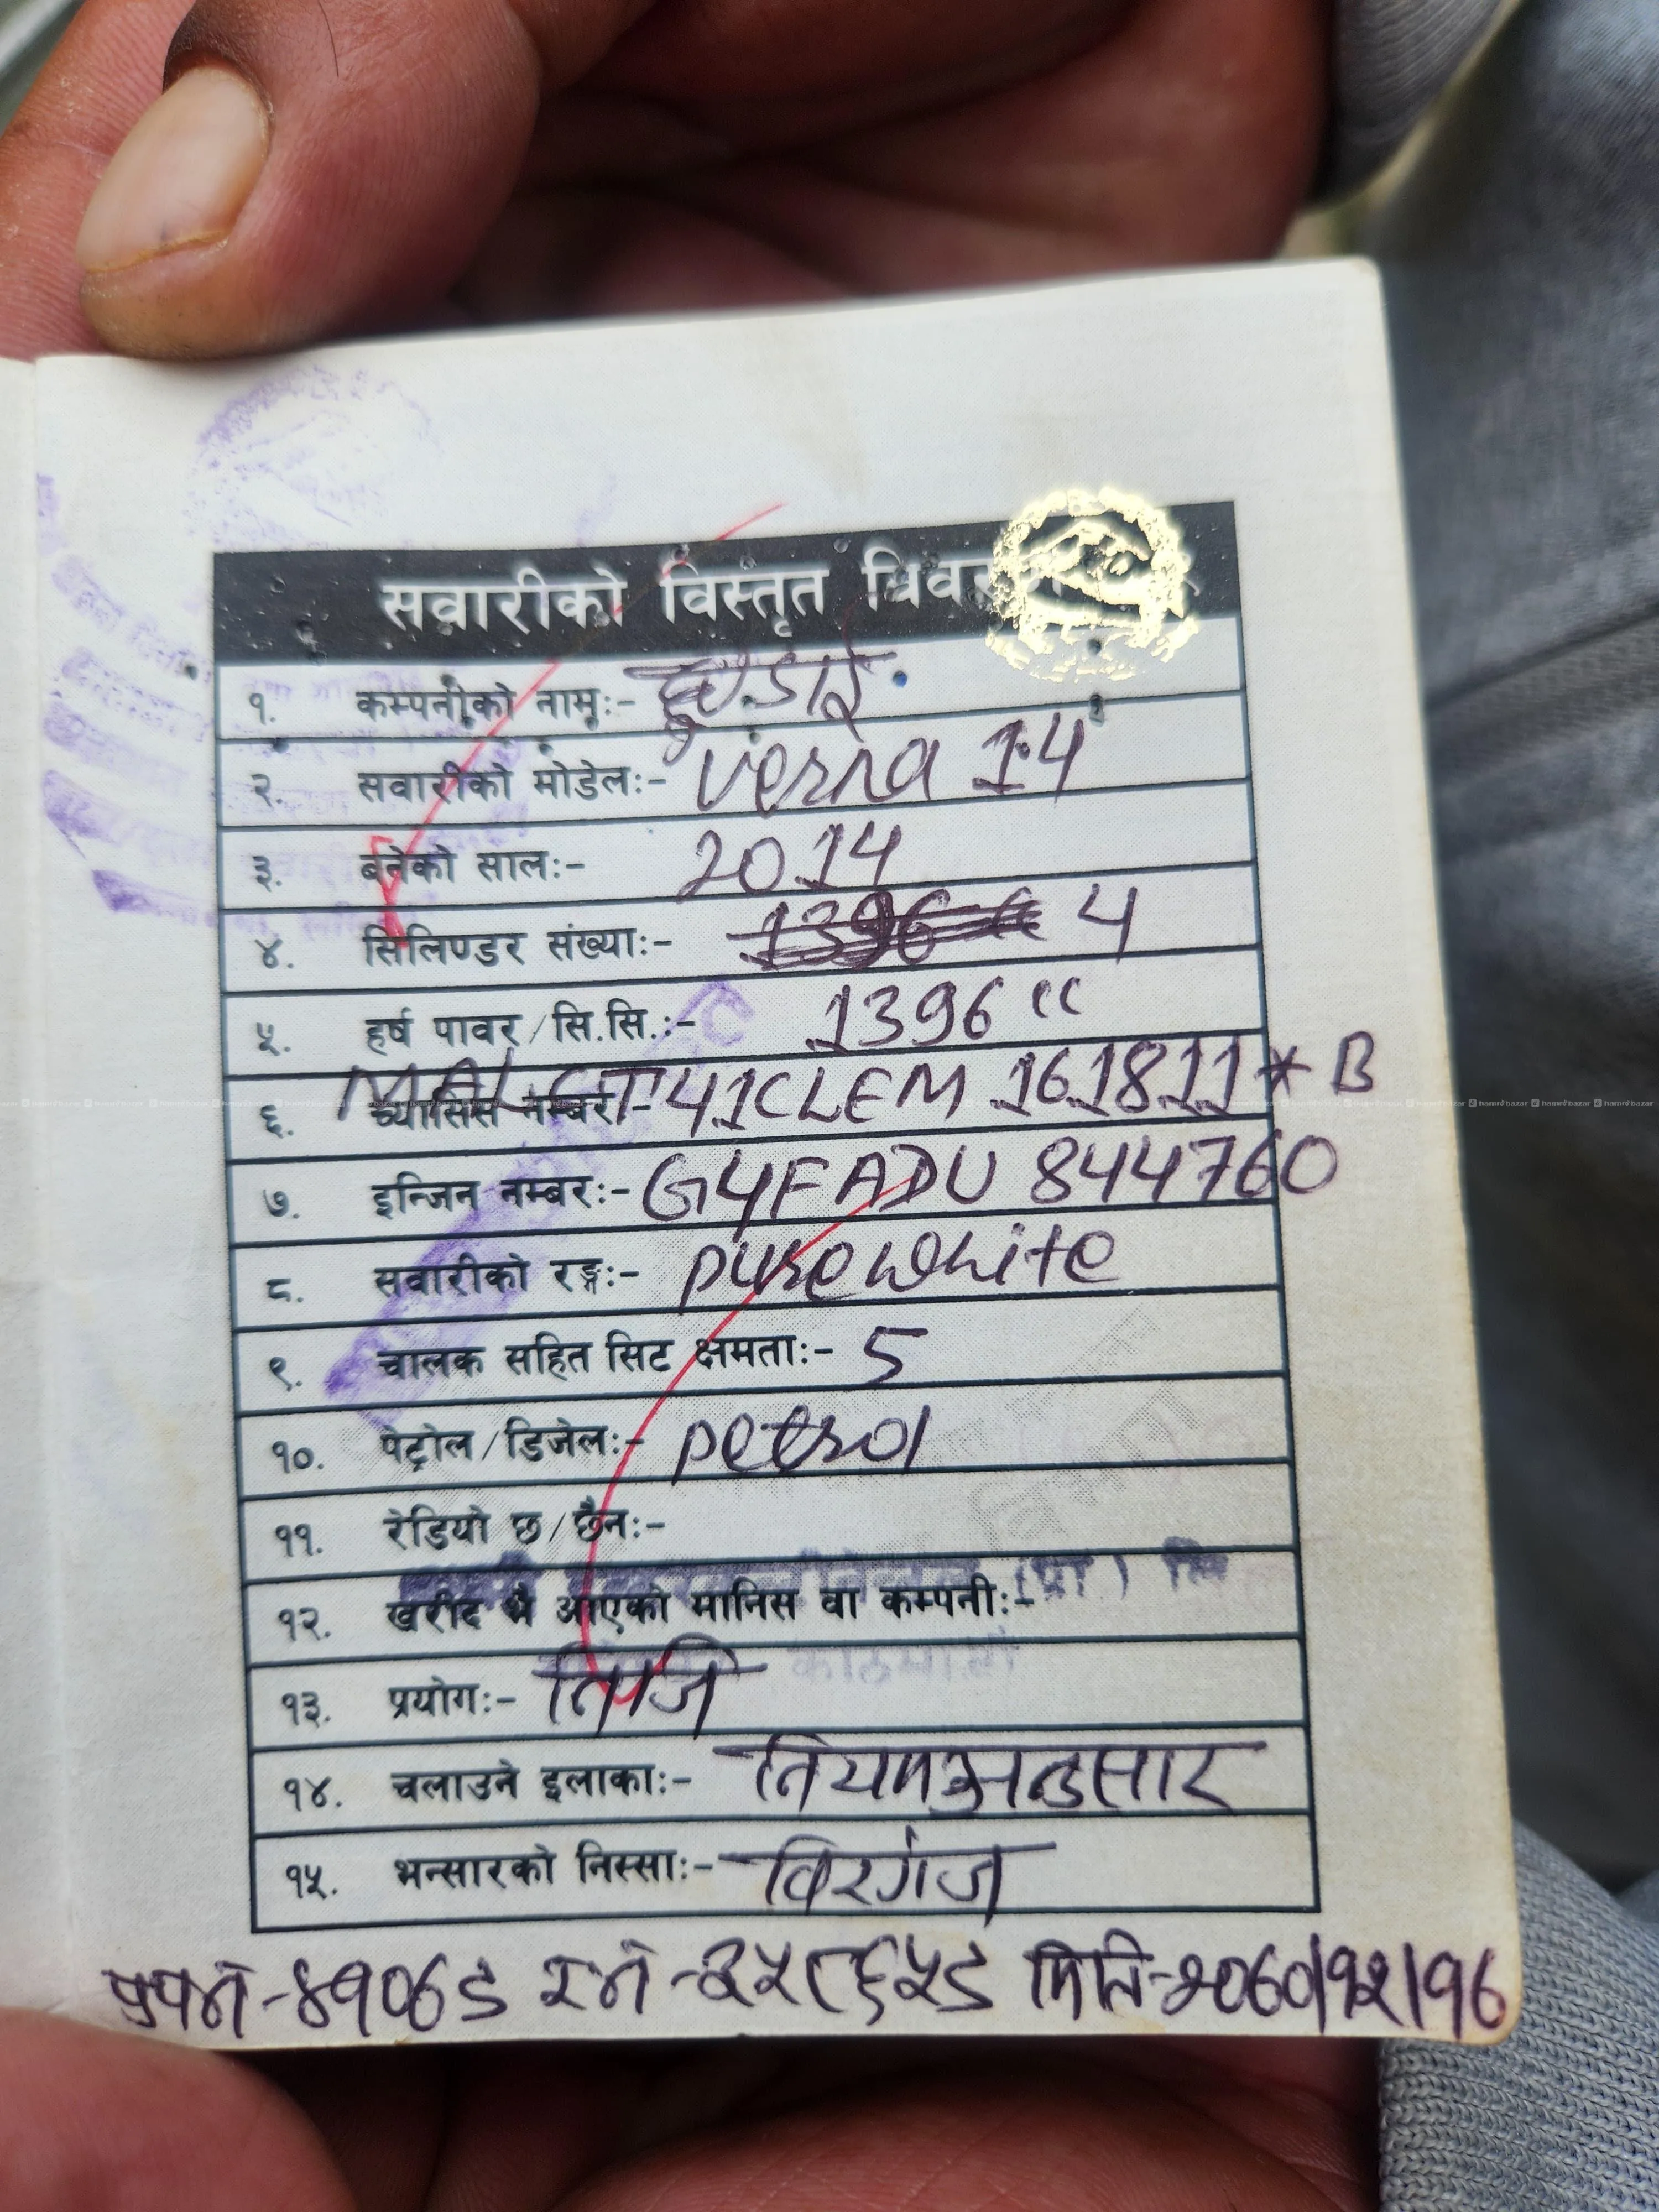 सवारीको विस्तृत
१. कम्पनीको नामः- हुण्डाई
२. सवारीको मोडेलः- Verna 1.4
३. बनेको सालः- 2014
४. सिलिण्डर संख्याः- 1396 cc 4
५. हर्ष पावर/सि.सि.:- 1396 cc
६. च्यासिस नम्बरः- MALCT41CLEM 161811*B
७. इन्जिन नम्बरः- G4FADU 844760
८. सवारीको रङ्गः- pure white
९. चालक सहित सिट क्षमताः- 5
१०. पेट्रोल/डिजेलः- petrol
११. रेडियो छ/छैनः-
१२. खरीद भै आएको मानिस वा कम्पनीः- (प्रा) लि
काठमाडौं
१३. प्रयोगः- निजि
१४. चलाउने इलाकाः- नियमअनुसार
१५. भन्सारको निस्साः- विरगंज
मिति-२०७०/१२/१७
hamrobazar hamrobazar hamrobazar hamrobazar